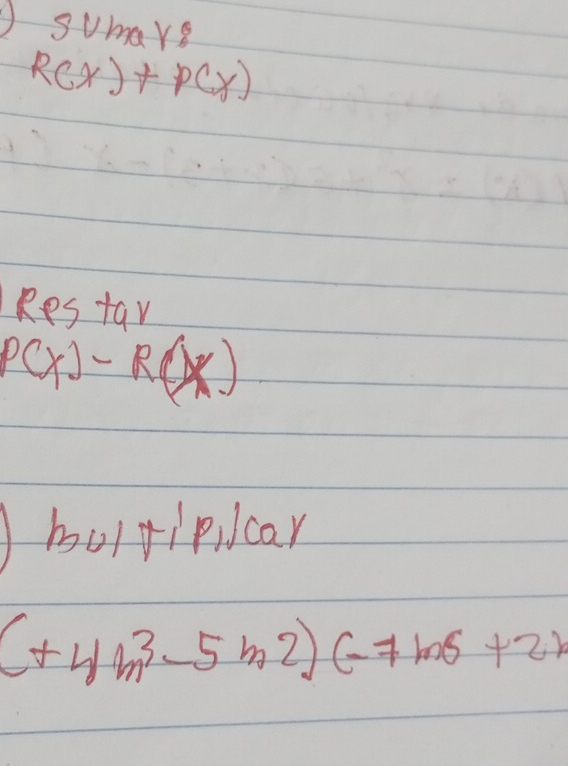 ) sumar:
R(x) + P(x)
) Restar
P(x) - R(x)
) multiplicar
(+4m³ - 5m2) (-7m6 + 2m